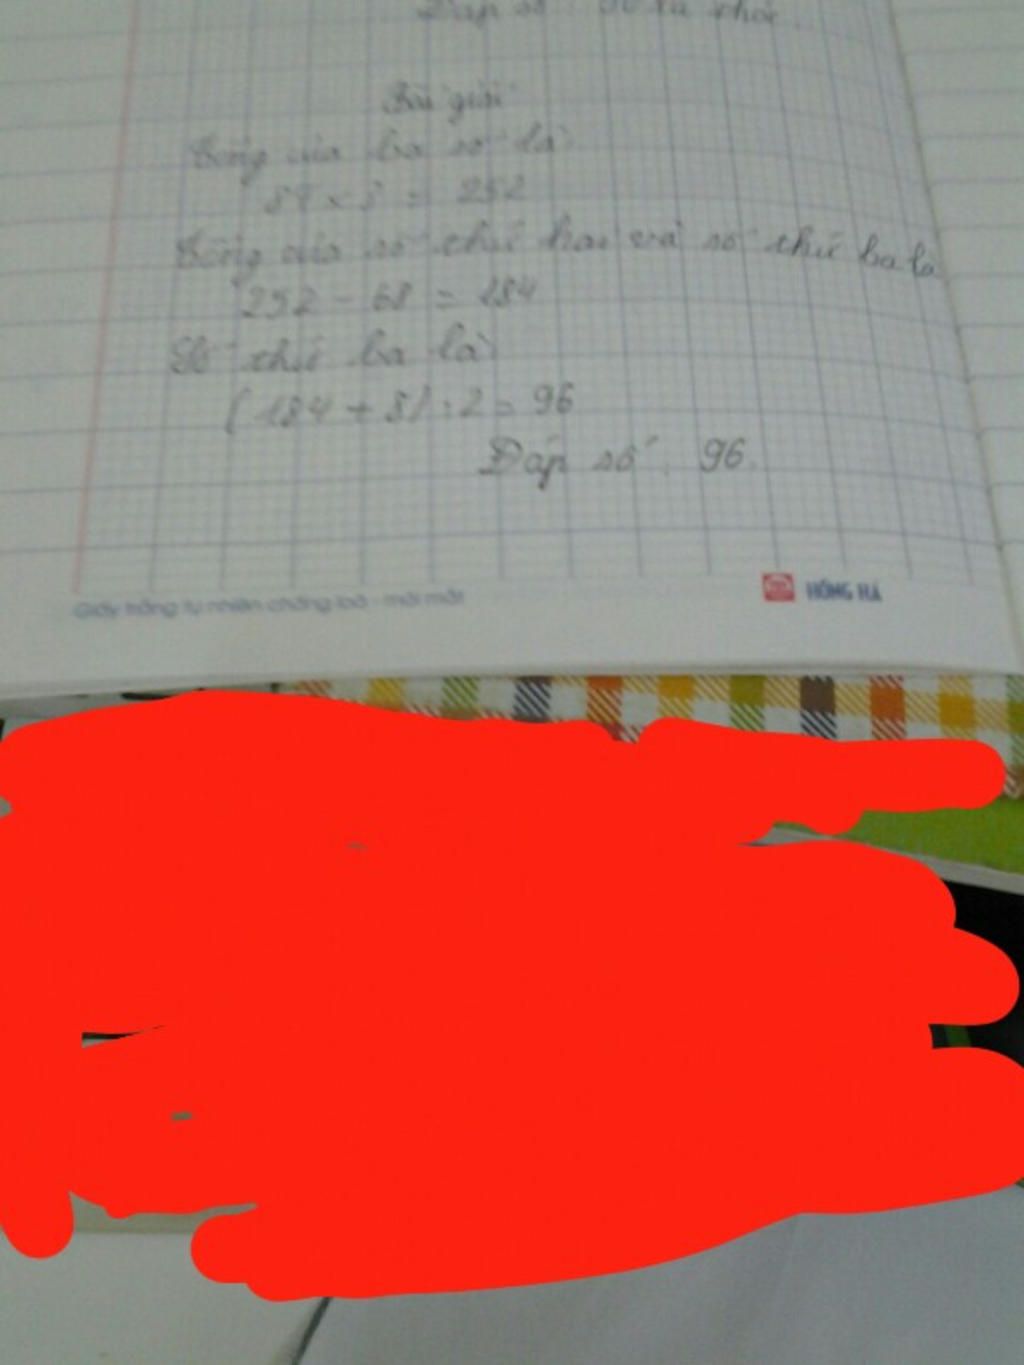 Đáp số:
Bài giải
Tổng của ba số là
84 x 3 = 252
Tổng của số thứ hai và số thứ ba là
252 - 68 = 184
Số thứ ba là
(184 + 8) : 2 = 96
Đáp số: 96.
Giấy trắng tự nhiên chống loá - mỏi mắt
HỒNG HÀ